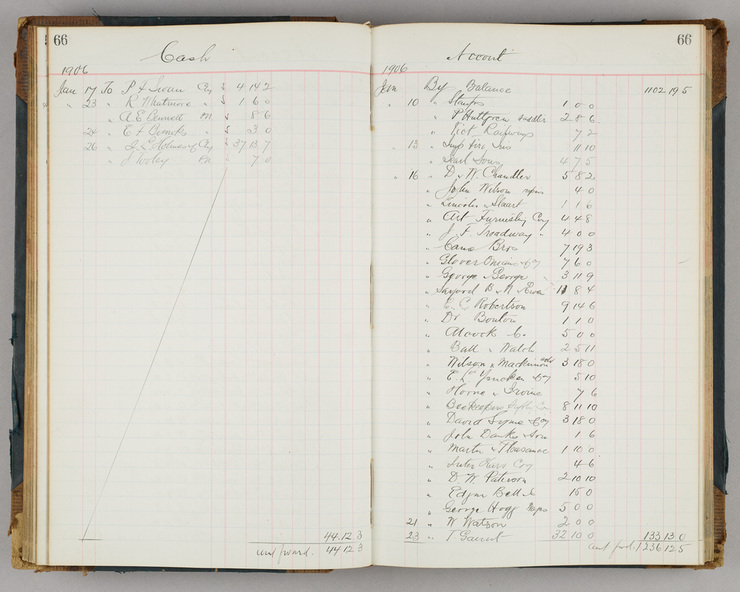 66
Cash
1906
Jan 17 To P J Swan 4 14 2
" 23 " R Whitmore " 1 6 0
A E Cennell 8 6
24 3 0
26 37 13 7
J 7 0
44.12.3
amt forward. 44 12 3
66
Account
1906
Jan By Balance 1102 19 5
" 10 " Stamps 1 0 0
P Huttgren 2 8 6
" Vict Railways 7 2
" 13 " Imp Fire Ins 11 10
" 4 7 5
" 16 " D. W. Chandler 5 8 2
" John Wilson 4 0
" Lincoln Stuart 1 1 6
" Art Furnishing Coy 4 4 8
" J. F. Treadway 4 0 0
" Cane Bros 7 19 3
" Glover Onians & Coy 7 6 0
" George & George 3 11 9
" 11 8 4
" E. C. Robertson 9 14 6
" Dr Bonton 1 1 0
" Alcock & Co 5 0 0
" Ball & Welch 2 5 11
" Wilson & Mackinnon 3 18 0
" E. L. Yencken & Coy 5 10
" Horne & Irvine 7 6
" Bookkeepers 8 11 10
" David Syme & Coy 3 18 0
" John Danks & Son 1 6
" Martin & Pleasance 1 10 0
" Coy 4 6
" D W Paterson 2 10 10
" Edgar Bell 15 0
" George Hogg 5 0 0
21 " W Watson 2 0 0
23 " T Garrett 32 10 0 133 13 0
amt fwd. 1236 12 5